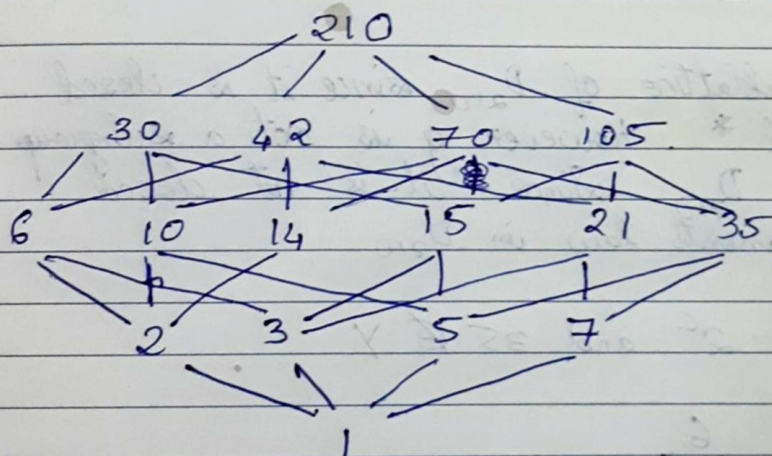 210
30 42 70 105
6 10 14 15 21 35
2 3 5 7
1